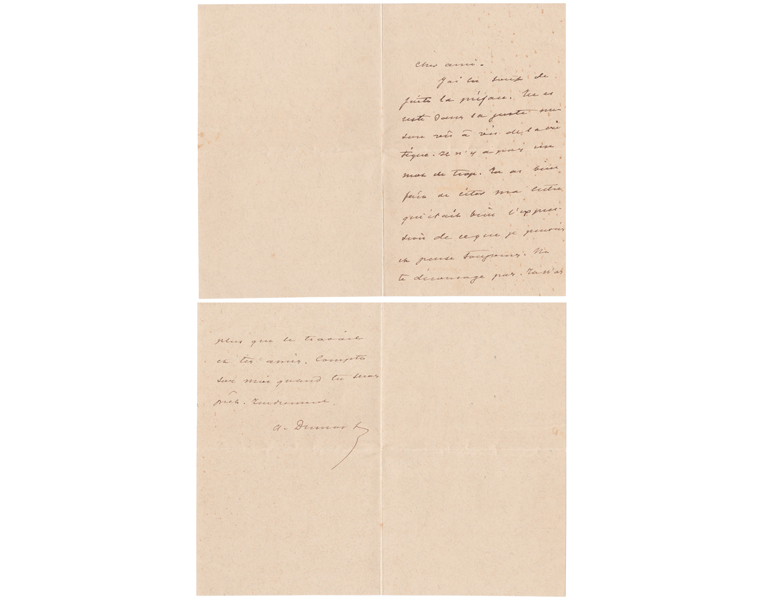 Cher ami.
J'ai lu toute de
suite la préface. Tu es
resté dans la juste me
sure vis à vis de la cri
tique. Il n'y a pas un
mot de trop. Tu as bien
fait de citer ma lettre
qui était bien l'expres
sion de ce que je pensais
et pense toujours. Ne
te décourage pas. Tu n'as
plus que le travail
et tes amis. Compte
sur moi quand tu seras
prêt. Tendrement
A. Dumas f